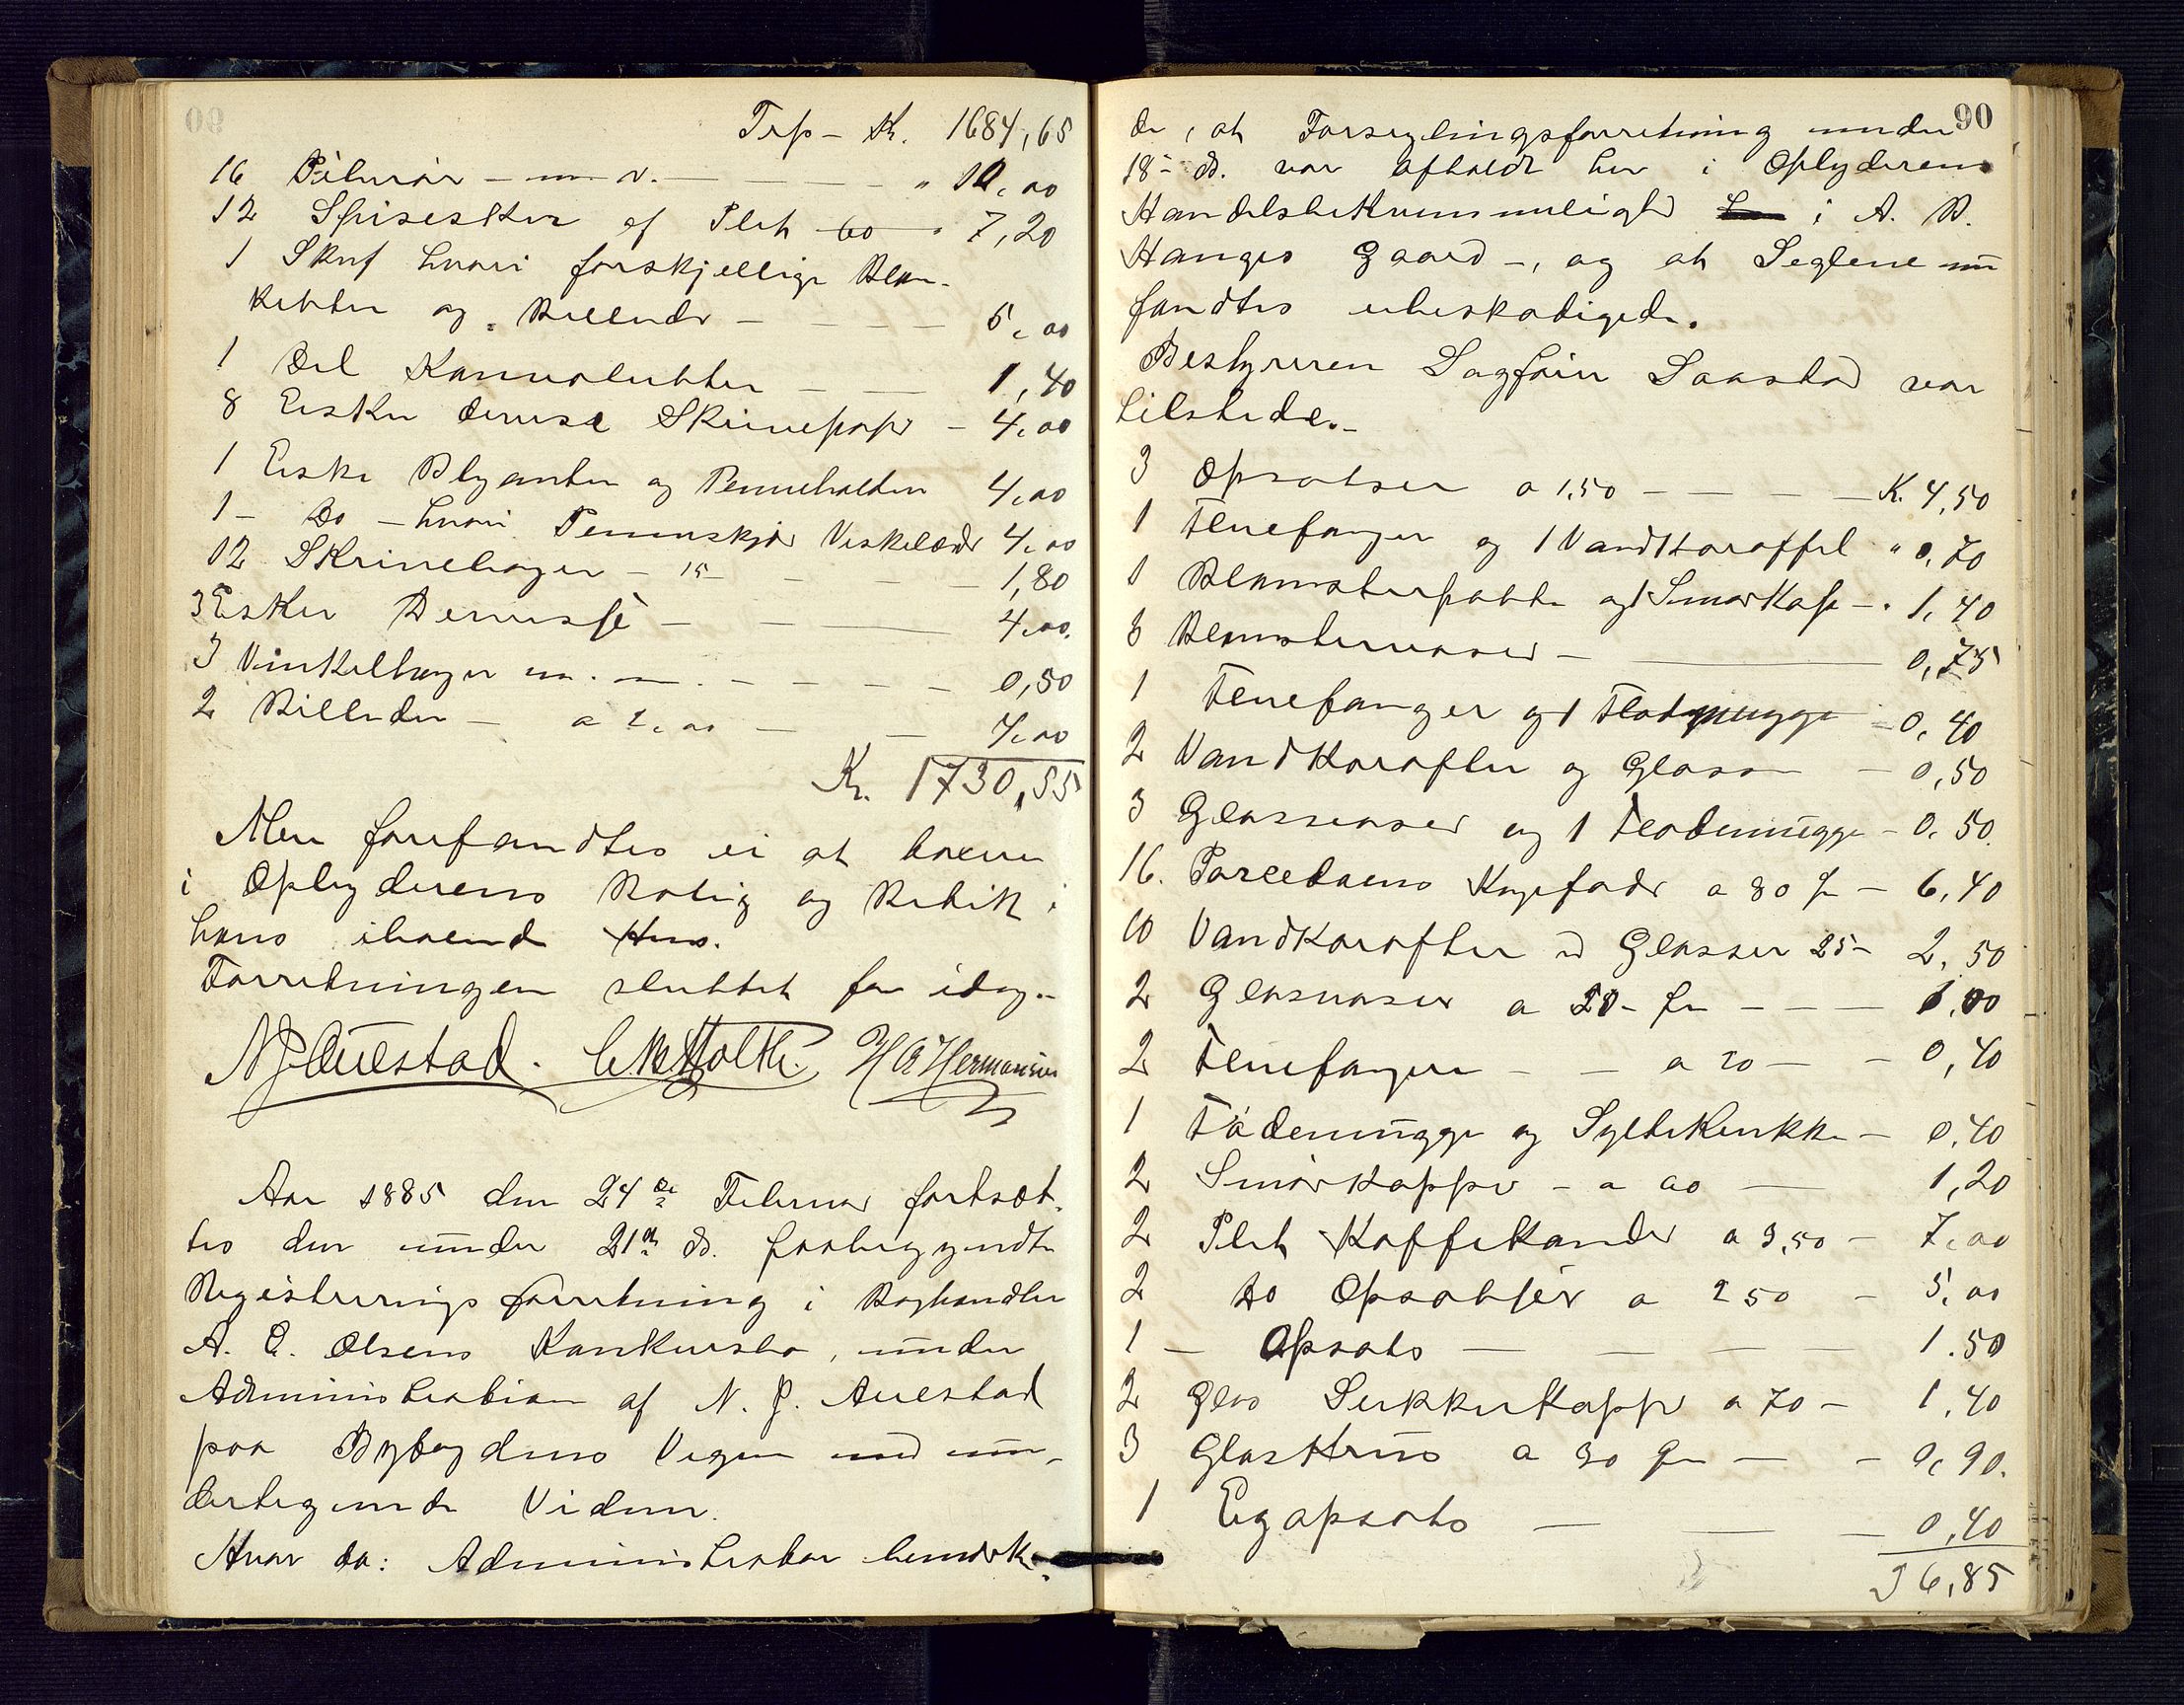 Trp - Kr. 1684,65
16 - m. v. - " 10,00
12 Spiseskeer af Plet 60 " 7,20
1 Skuf hvori forskjellige Blan-
ketter og Billeder - 5,00
1 Del Konvolutter - 1,40
8 Esker diverse Skrivepapir - 4,00
1 Eske Blyanter og Penneholdere 4,00
1 - Do - hvori Pennuskjær Viskelæder 4,00
12 Skrivebøger - 15 - 1,80
3 Esker Diverse - 4,00.
3 Vinkelhager m. m. - 0,50
2 Billeder - a 2,00 - 4,00
Kr. 1730,55
Mere forefandtes ei at være
i Opbyderens Bolig og Butik i
hans iboende Hus.
Forretningen sluttet for idag. -
N J Auestad. C M Holth. H A Hermansen
Aar 1885 den 24de Februar fortsat-
tes den under 21de ds. paabegyndte
Registreringsforretning i Boghandler
A. C. Olsens Konkursbo, under
Administration af N. J. Auestad
paa Byfogdens Vegne med un-
dertegnende Vidner.
Hvor da: Administrator bemærke-
90
de, at Forseglingsforretning under
18 - ds. var afholdt her i Opbyderens
Handelsbekvemmelighed i A. B.
Hanges Gaard -, og at Seglene nu
fandtes ubeskadigede.
Bestyreren Sagfører Saastad var
tilstede. -
3 Opsatser a 1,50 - - - - K. 4,50
1 Fluefanger og 1 Vandkaraffel " 0,70
1 Blomsterpotte og 1 Smørkop - " 1,40
3 Blomstervaser - 0,75
1 Fluefanger og 1 Flødemugge - 0,40
2 Vandkarafler og Glasse - 0,50
3 Glasvaser og 1 Flødemugge - 0,50.
16. Porcelæns Kagefade a 40 Ør - 6,40
10 Vandkarafler m Glasser 25 - 2,50
2 Glasvaser a 50 - Ør - - - 1,00
2 Fluefangere - - a 20 - - 0,40
1 Flødemugge og Syltekrukke - 0,40
2 Smørkopper - a 60 - 1,20
2 Plet Kaffekander a 3,50 - 7,00
2 Do Opsatser a 2 50 - 5,00
1 - Opsats - - - - 1.50
2 Glas Sukkerkopper a 70 - 1,40
3 Glaskrus a 30 Ør - - 0,90.
1 Egopsats - - - 0,40
36,85